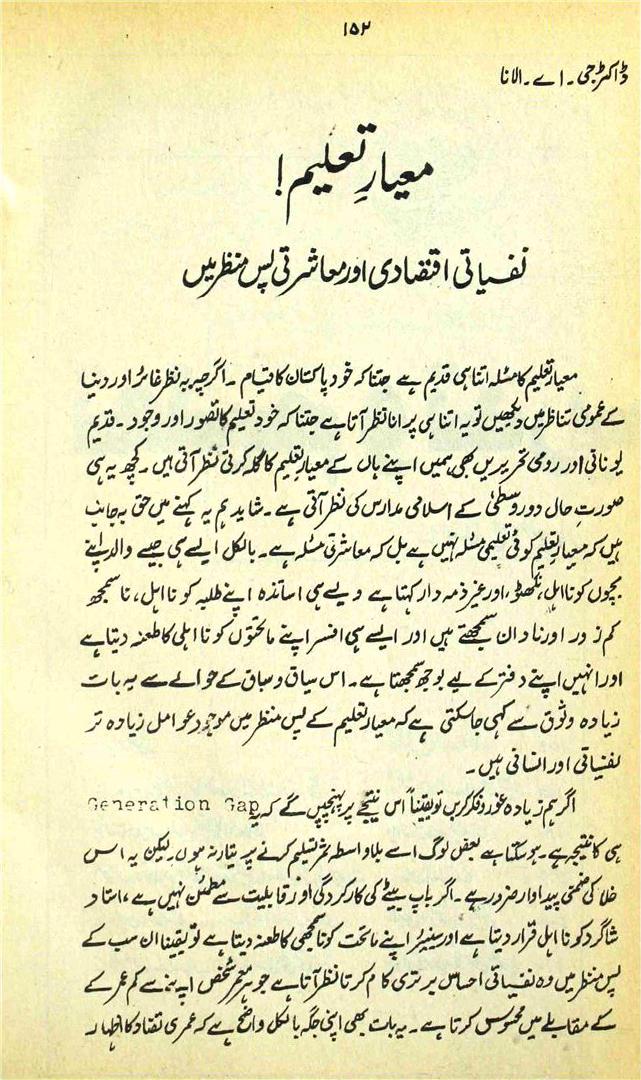 ۱۵۲
ڈاکٹر جی۔ اے۔ الانا
معیارِ تعلیم!
نفسیاتی اقتصادی اور معاشرتی پس منظر میں
معیارِ تعلیم کا مسئلہ اتنا ہی قدیم ہے جتنا کہ خود پاکستان کا قیام۔ اگرچہ بہ نظرِ غائر اور دنیا
کے عمومی تناظر میں دیکھیں تو یہ اتنا ہی پرانا نظر آتا ہے جتنا کہ خود تعلیم کا تصور اور وجود۔ قدیم
یونانی اور رومی تحریریں بھی ہمیں اپنے ہاں کے معیارِ تعلیم کا گلہ کرتی نظر آتی ہیں۔ کچھ یہ ہی
صورتِ حال دورِ وسطیٰ کے اسلامی مدارس کی نظر آتی ہے۔ شاید ہم یہ کہنے میں حق بہ جانب
ہیں کہ معیارِ تعلیم کوئی تعلیمی مسئلہ نہیں ہے بل کہ معاشرتی مسئلہ ہے۔ بالکل ایسے ہی جیسے والد اپنے
بچوں کو نااہل، نکھٹو، اور غیر ذمہ دار کہتا ہے ویسے ہی اساتذہ اپنے طلبہ کو نااہل، ناسمجھ
کم زور اور نادان سمجھتے ہیں اور ایسے ہی افسر اپنے ماتحتوں کو نااہلی کا طعنہ دیتا ہے
اور انہیں اپنے دفتر کے لیے بوجھ سمجھتا ہے۔ اس سیاق و سباق کے حوالے سے یہ بات
زیادہ وثوق سے کہی جاسکتی ہے کہ معیارِ تعلیم کے پس منظر میں موجود عوامل زیادہ تر
نفسیاتی اور انسانی ہیں۔
اگر ہم زیادہ غور و فکر کریں تو یقیناً اس نتیجے پر پہنچیں گے کہ یہ Generation Gap
ہی کا نتیجہ ہے۔ ہوسکتا ہے بعض لوگ اسے بلاواسطہ ثمر تسلیم کرنے پر تیار نہ ہوں لیکن یہ اس
خلا کی ضمنی پیداوار ضرور ہے۔ اگر باپ بیٹے کی کارکردگی اور قابلیت سے مطمئن نہیں ہے، استاد
شاگرد کو نااہل قرار دیتا ہے اور سینیئر اپنے ماتحت کو ناسمجھی کا طعنہ دیتا ہے تو یقیناً ان سب کے
پس منظر میں وہ نفسیاتی احساسِ برتری کام کرتا نظر آتا ہے جو ہر معمر شخص اپنے سے کم عمر کے
کے مقابلے میں محسوس کرتا ہے۔ یہ بات بھی اپنی جگہ بالکل واضح ہے کہ عمری تضاد کا اظہار